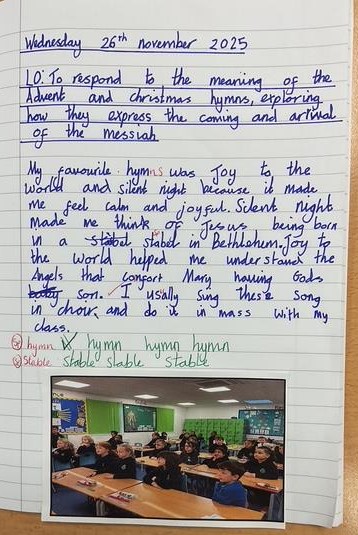 Wednesday 26th november 2025
LO: To respond to the meaning of the
Advent and christmas hymns, exploring
how they express the coming and arrival
of the messiah
My favourite hymns was Joy to the
world and silent night because it made
me feel calm and joyful. Silent night
made me think of Jesus being born
in a stabel stabled in Bethlehem. Joy to
the world helped me understand the
Angels that comfort Mary having Gods
baby son. I usally sing these song
in choir and do it in mass with my
class.
hymn hymn hymn hymn
Stable Stable Stable Stable